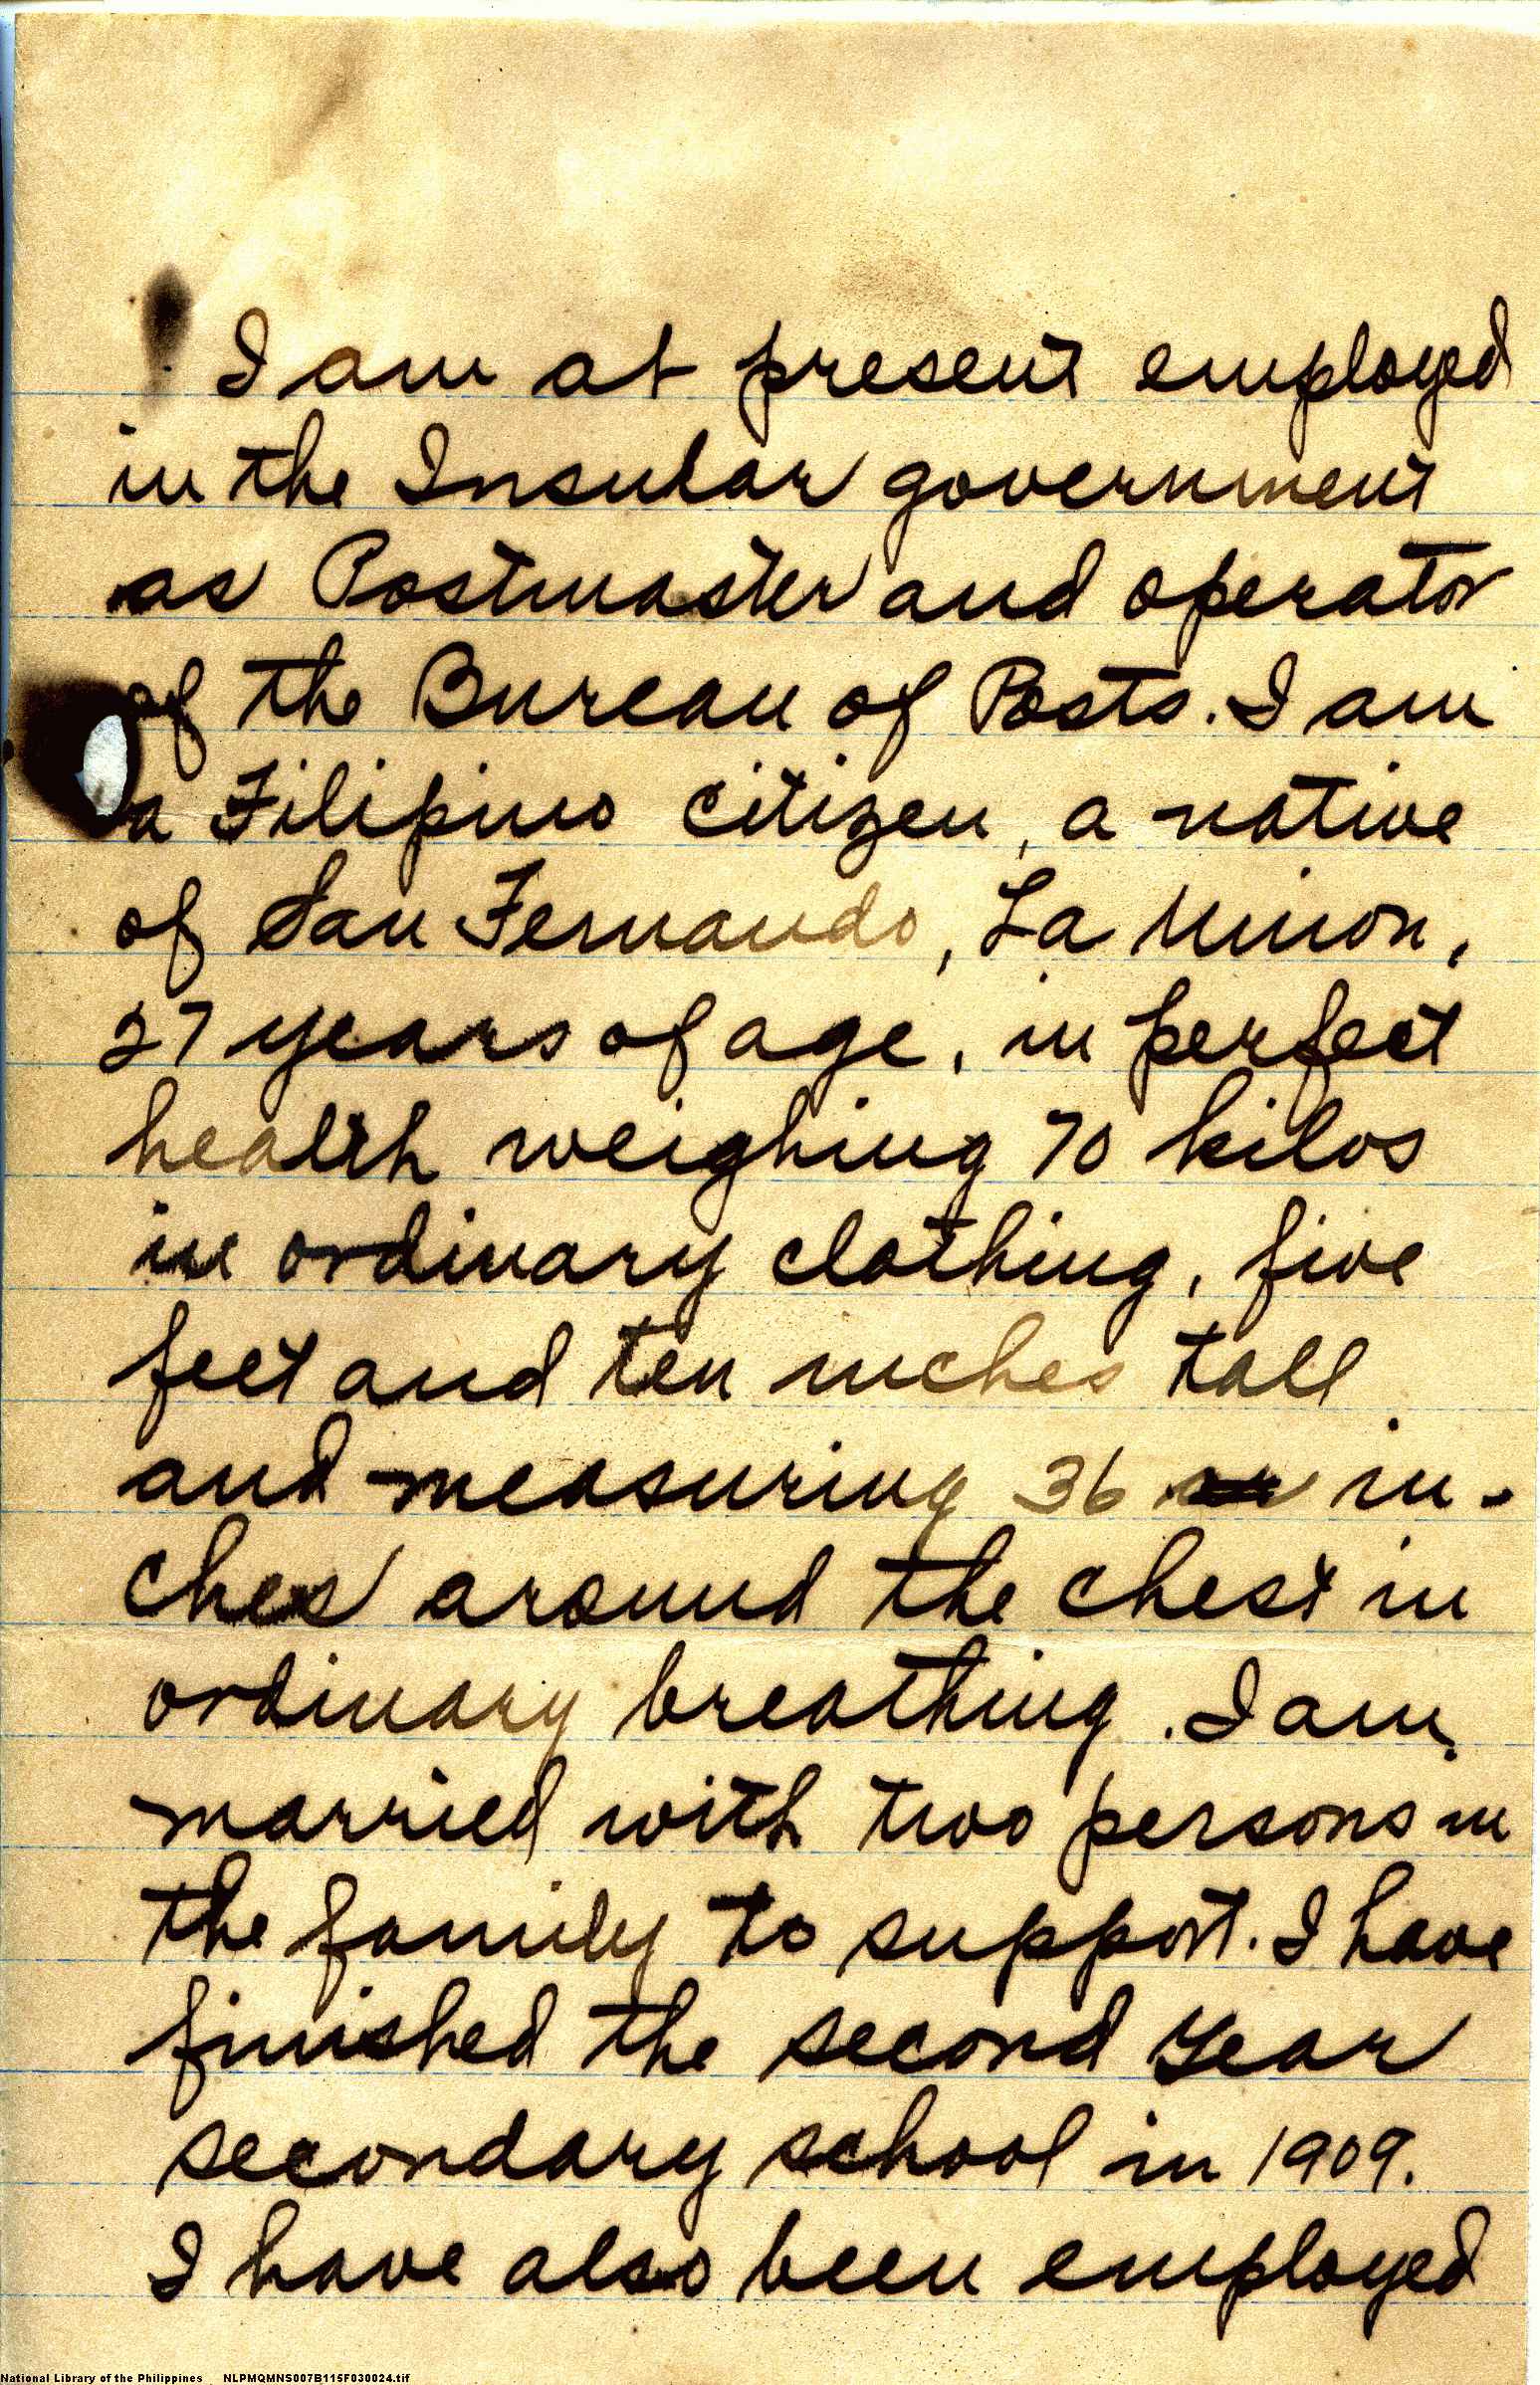 I am at present employed
in the Insular government
as Postmaster and operator
of the Bureau of Posts. I am
a Filipino citizen, a native
of San Fernando, La Union,
27 years of age, in perfect
health weighing 70 kilos
in ordinary clothing, five
feet and ten inches tall
and measuring 36 in-
ches around the chest in
ordinary breathing. I am
married with two persons in
the family to support. I have
finished the second year
secondary school in 1909.
I have also been employed
National Library of the Philippines NLPMQMNS007B115F030024.tif